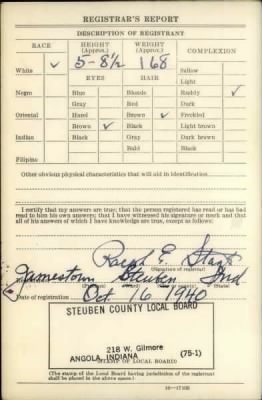 REGISTRAR'S REPORT
DESCRIPTION OF REGISTRANT
RACE HEIGHT (Approx.) WEIGHT (Approx.) COMPLEXION
White ✓ 5-8½ 168 Sallow
EYES HAIR Light
Negro Blue Blonde Ruddy ✓
Gray Red Dark
Oriental Hazel Brown ✓ Freckled
Brown ✓ Black Light brown
Indian Black Gray Dark brown
Bald Black
Filipino
Other obvious physical characteristics that will aid in identification
I certify that my answers are true; that the person registered has read or has had
read to him his own answers; that I have witnessed his signature or mark and that
all of his answers of which I have knowledge are true, except as follows:
Ralph E.
(Signature of registrar)
Jamestown Steuben Ind
Date of registration Oct 16 1940
STEUBEN COUNTY LOCAL BOARD
218 W. Gilmore (75-1)
ANGOLA, INDIANA
(STAMP OF LOCAL BOARD)
(The stamp of the Local Board having jurisdiction of the registrant
shall be placed in the above space.)